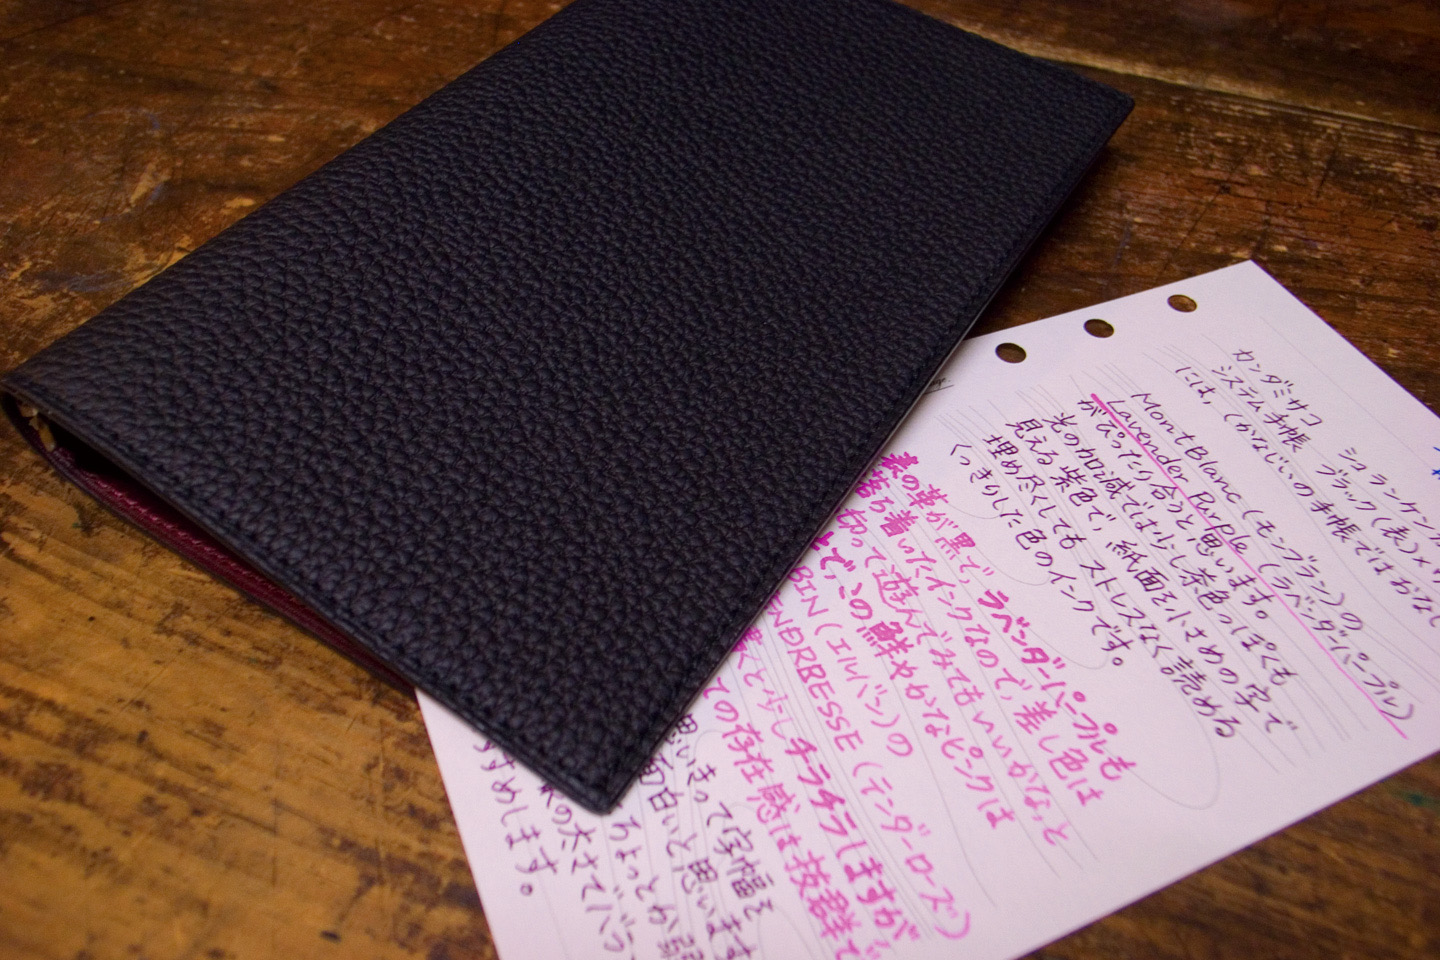 カンダミサコ シュランケンカ
システム手帳 ブラック(表)×
には、(かなじいの手帳ではおな
MontBlanc(モンブラン)の
Lavender Purple(ラベンダーパープル)
がぴったり合うと思います。
光の加減では少し茶色っぽくも
見える紫色で、紙面を小さめの字で
埋め尽くしてもストレスなく読める
くっきりした色のインクです。
表の革が黒で、ラベンダーパープルも
落ち着いたインクなので、差し色は
切って遊んでみてもいいかな、と
で、この鮮やかなピンクは
BIN(エルバン)の
ENDRBESSE(テンダーローズ)
と少しチラチラしますが、
ての存在感は抜群で
思いきって字幅を
面白いと思います
ちょっとか弱
の太さでバラ
すすめします。